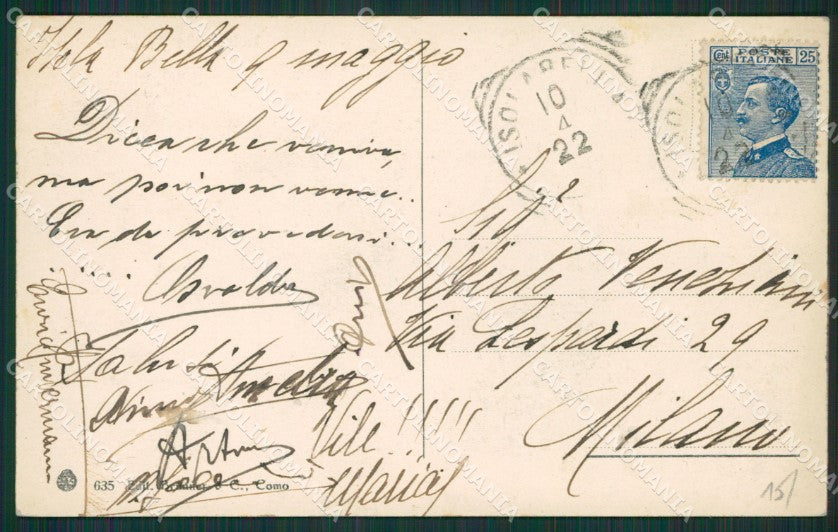 Isola Bella 9 maggio
Dicca che veniva,
ma poi non venne..
Era da prevedersi...
.... Osvaldo
Saluti
Amelia
Vile!!!!!
Maria
ISOLA BELLA
10
A
22
ISOLA
10
A
22
POSTE
ITALIANE
25
Sig.a
Alberto Veneziani
Via Leopardi 29
Milano
635 Edit. & C., Como
15/
CARTOLINOMANIA